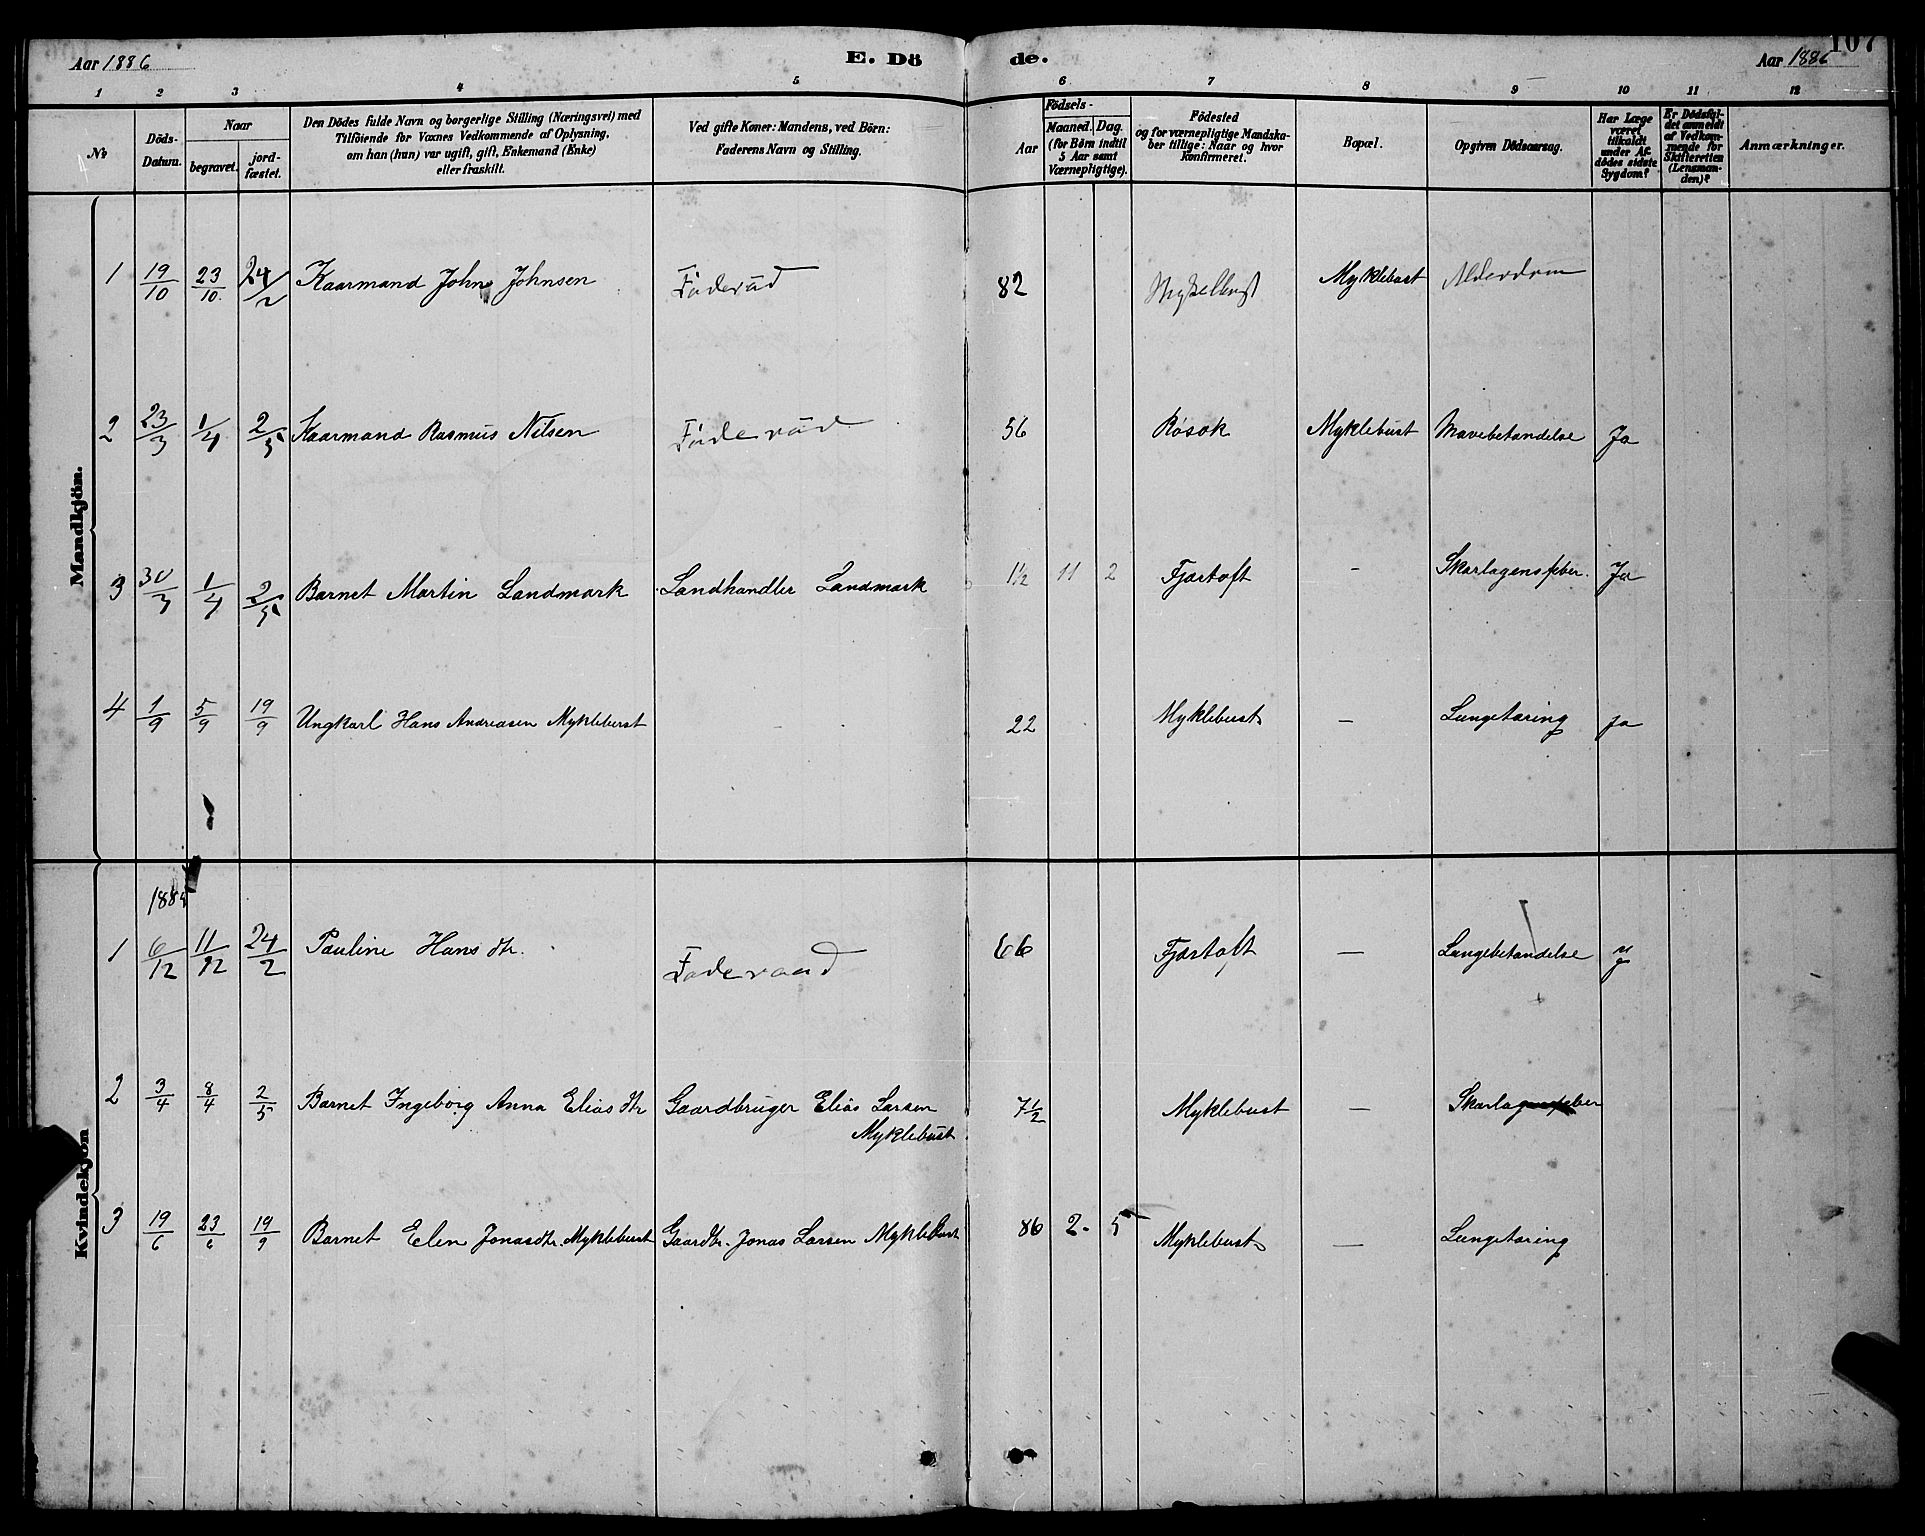 Aar 1886
E. Dö
de.
107
Aar 1886
1 2 3 4 5 6 7 8 9 10 11 12
No
Döds-
Datum.
Naar
begravet.
jord-
fæstet.
Den Dödes fulde Navn og borgerlige Stilling (Næringsvei) med
Tilföiende for Voxnes Vedkommende af Oplysning,
om han (hun) var ugift, gift, Enkemand (Enke)
eller fraskilt.
Ved gifte Koner: Mandens, ved Börn:
Faderens Navn og Stilling.
Födsels-
Aar
Maaned. Dag.
(for Börn indtil
5 Aar samt
Værnepligtige).
Födested
og for værnepligtige Mandska-
ber tillige: Naar og hvor
konfirmeret.
Bopæl.
Opgiven Dödsaarsag.
Har Læge
været
tilkaldt
under Af-
dödes sidste
Sygdom?
Er Dödsfal-
det anmeldt
af Vedkom-
mende for
Skifteretten
(Lensman-
den)?
Anmærkninger.
Mandkjön.
1 19/10 23/10. 24/2 Kaarmand John Johnsen Føderåd 82 Mykelbust Myklebust Alderdom
2 23/3 1/4 2/5 Kaarmand Rasmus Nilsen Føderåd 56 Røsok Myklebust Mavebetændelse Ja
3 30/3 1/4 2/5 Barnet Martin Landmark Landhandler Landmark 1½ 11 2 Fjørtoft - Skarlagensfeber. Ja
4 1/9 5/9 19/9 Ungkarl Hans Andreasen Myklebust - 22 Myklebust — Lungetæring Ja
Kvindekjön
1885
1 6/12 11/12 24/2 Pauline Hansdtr. Føderaad 66 Fjørtoft — Lungebetændelse
2 3/4 8/4 2/5 Barnet Ingeborg Anna Eliasdtr Gaardbruger Elias Larsen
Myklebust
7½ Myklebust — Skarlagensfeber
3 19/6 23/6 19/9 Barnet Elen Jonasdtr. Myklebust Gaardbr. Jonas Larsen Myklebust 86 2. 5 Myklebust — Lungetæring